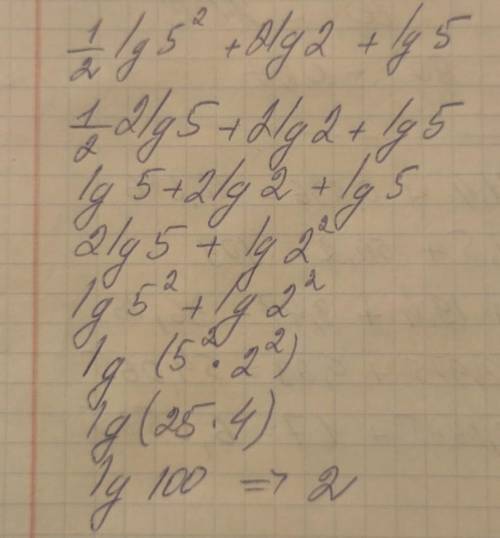 1/2 lg 5² + 2lg 2 + lg 5
1/2 2lg 5 + 2lg 2 + lg 5
lg 5 + 2lg 2 + lg 5
2lg 5 + lg 2²
lg 5² + lg 2²
lg (5² · 2²)
lg (25 · 4)
lg 100 => 2